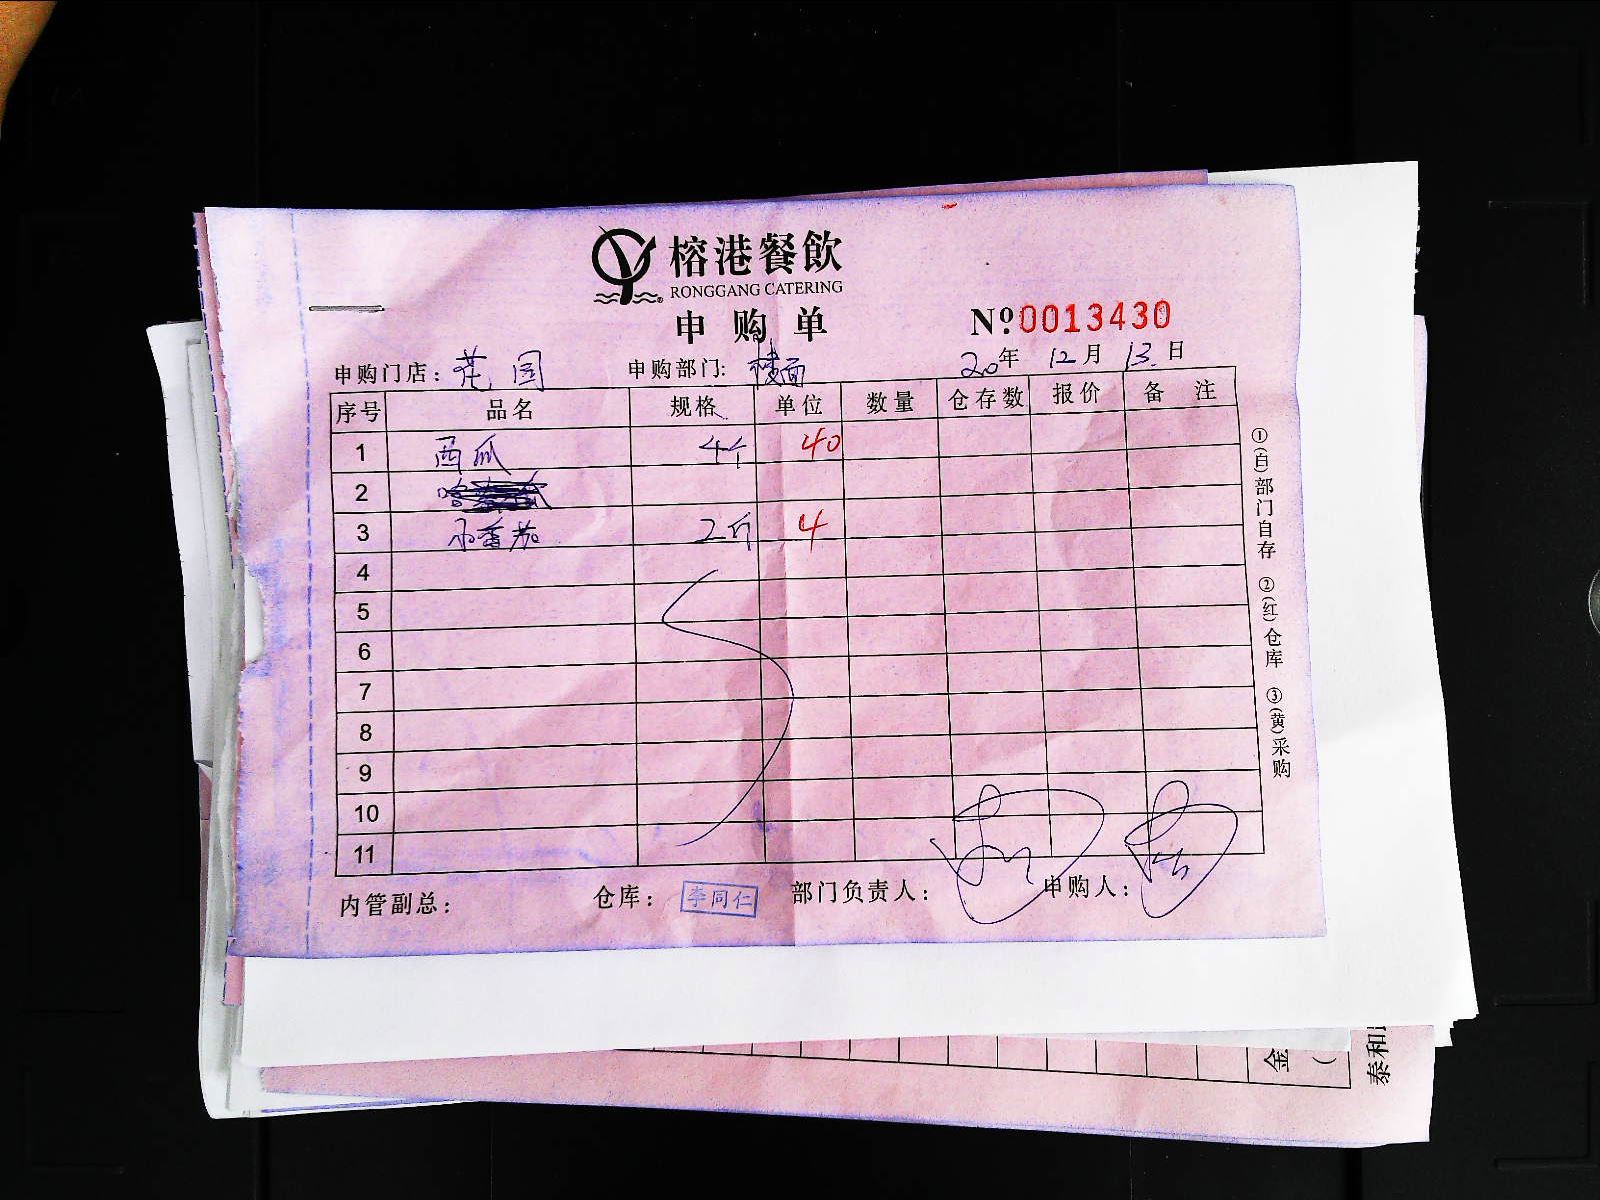 榕港餐飲
RONGGANG CATERING
申购单 Nº0013430
申购门店：花园 申购部门：楼面 20年12月13日
序号 品名 规格 单位 数量 仓存数 报价 备注
1 西瓜 4个 40
2
3 小番茄 2斤 4
4
5
6
7
8
9
10
11
内管副总： 仓库：李同仁 部门负责人： 申购人：
①(白)部门自存 ②(红)仓库 ③(黄)采购
金
泰和